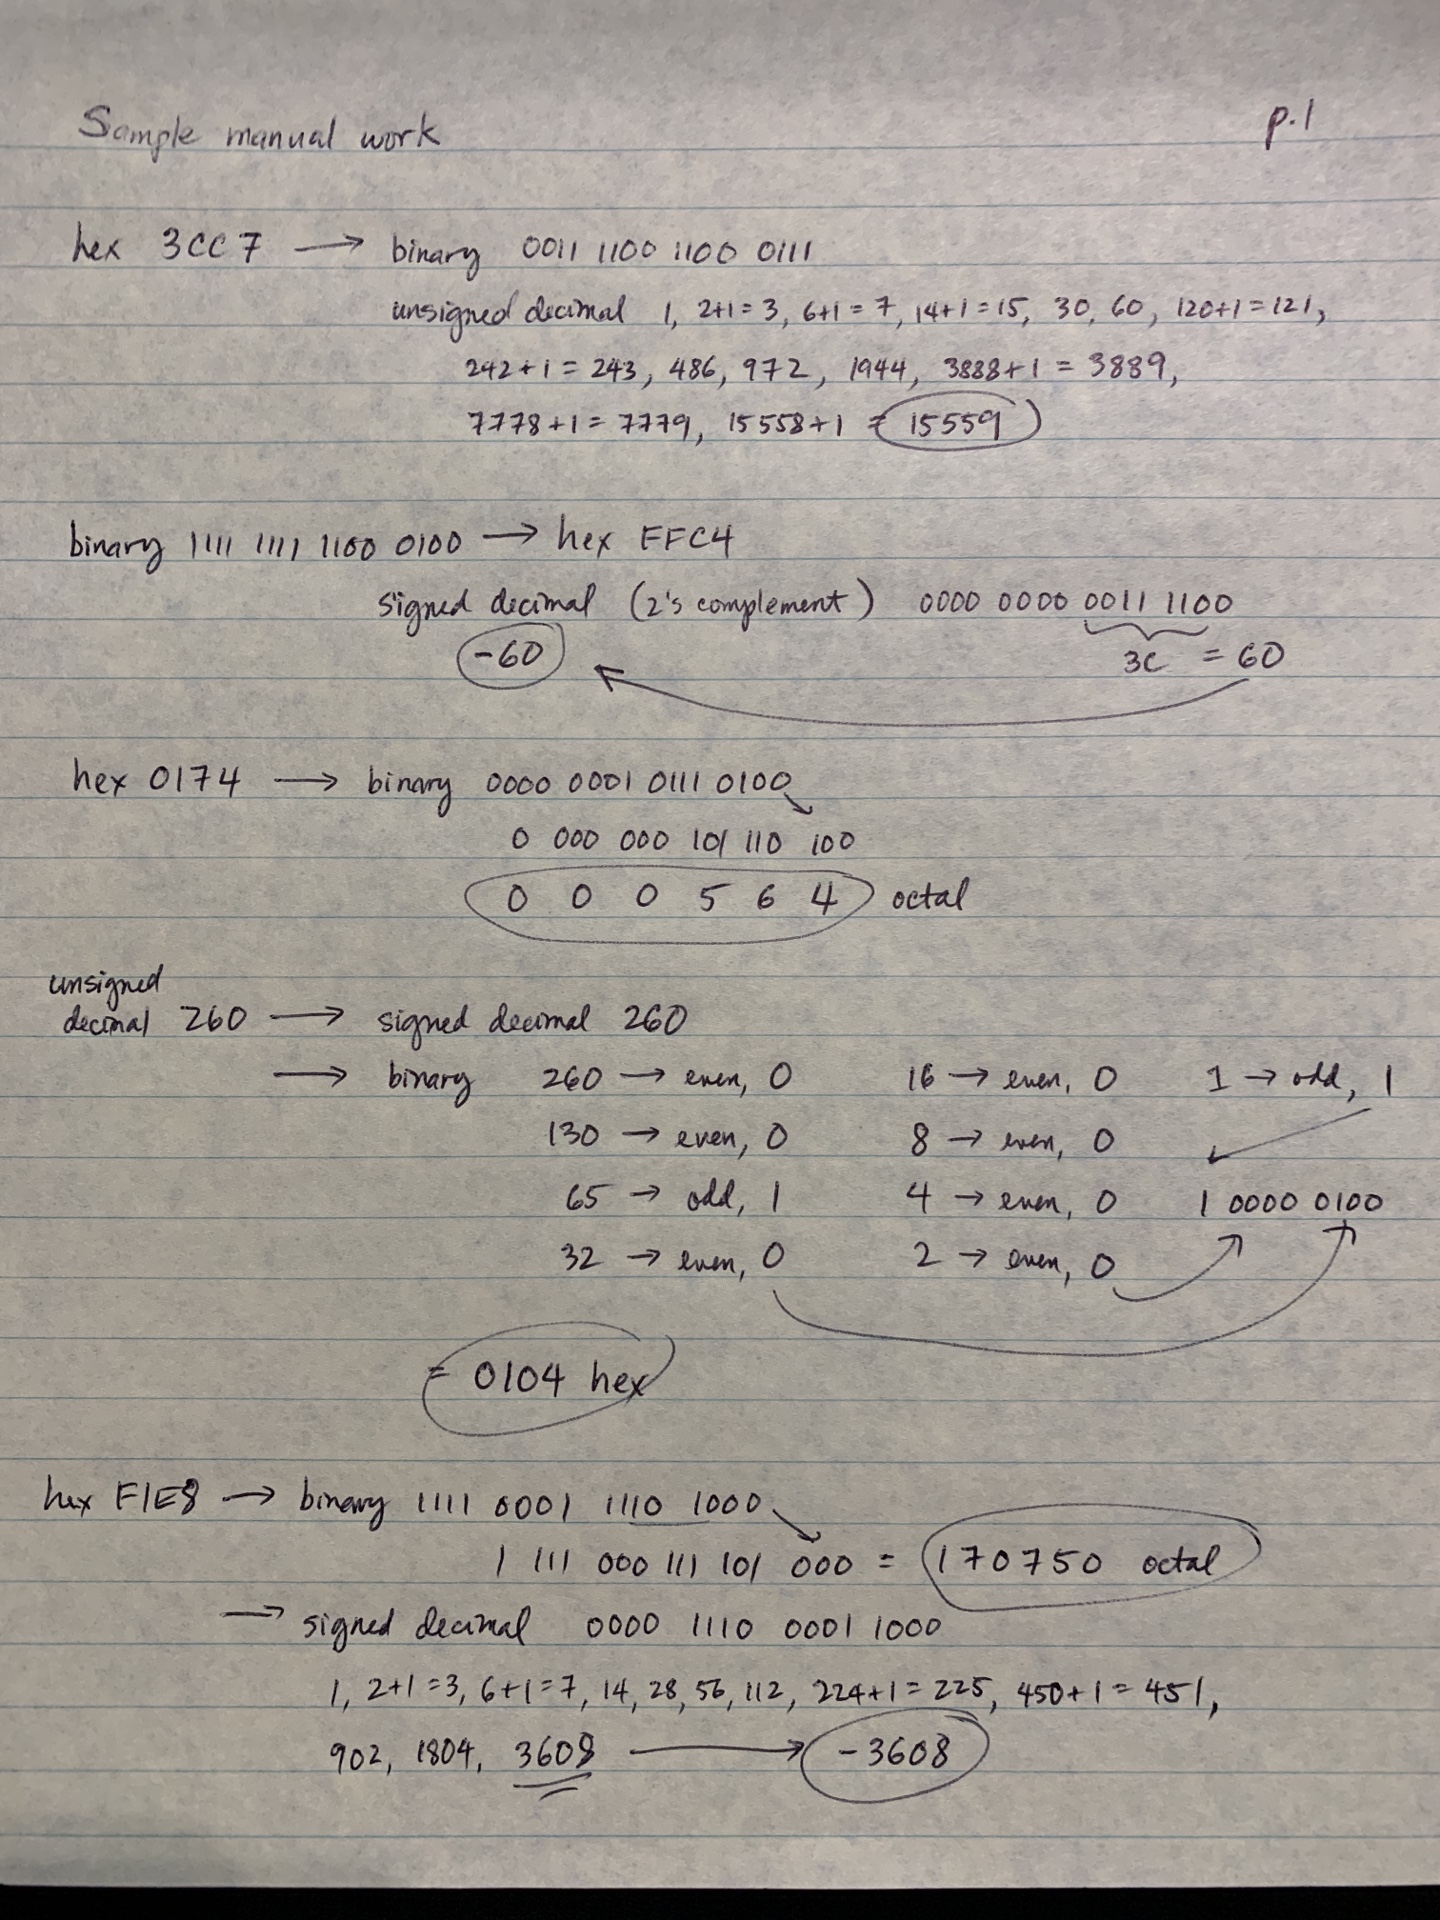 Sample manual work p.1
hex 3CC7 → binary 0011 1100 1100 0111
unsigned decimal 1, 2+1=3, 6+1=7, 14+1=15, 30, 60, 120+1=121,
242+1=243, 486, 972, 1944, 3888+1=3889,
7778+1=7779, 15558+1=15559
binary 1111 1111 1100 0100 → hex FFC4
signed decimal (2's complement) 0000 0000 0011 1100
-60 3C = 60
hex 0174 → binary 0000 0001 0111 0100
0 000 000 101 110 100
0 0 0 5 6 4 octal
unsigned
decimal 260 → signed decimal 260
→ binary 260 → even, 0 16 → even, 0 1 → odd, 1
130 → even, 0 8 → even, 0
65 → odd, 1 4 → even, 0 1 0000 0100
32 → even, 0 2 → even, 0
= 0104 hex
hex F1E8 → binary 1111 0001 1110 1000
1 111 000 111 101 000 = 170750 octal
→ signed decimal 0000 1110 0001 1000
1, 2+1=3, 6+1=7, 14, 28, 56, 112, 224+1=225, 450+1=451,
902, 1804, 3608 → -3608